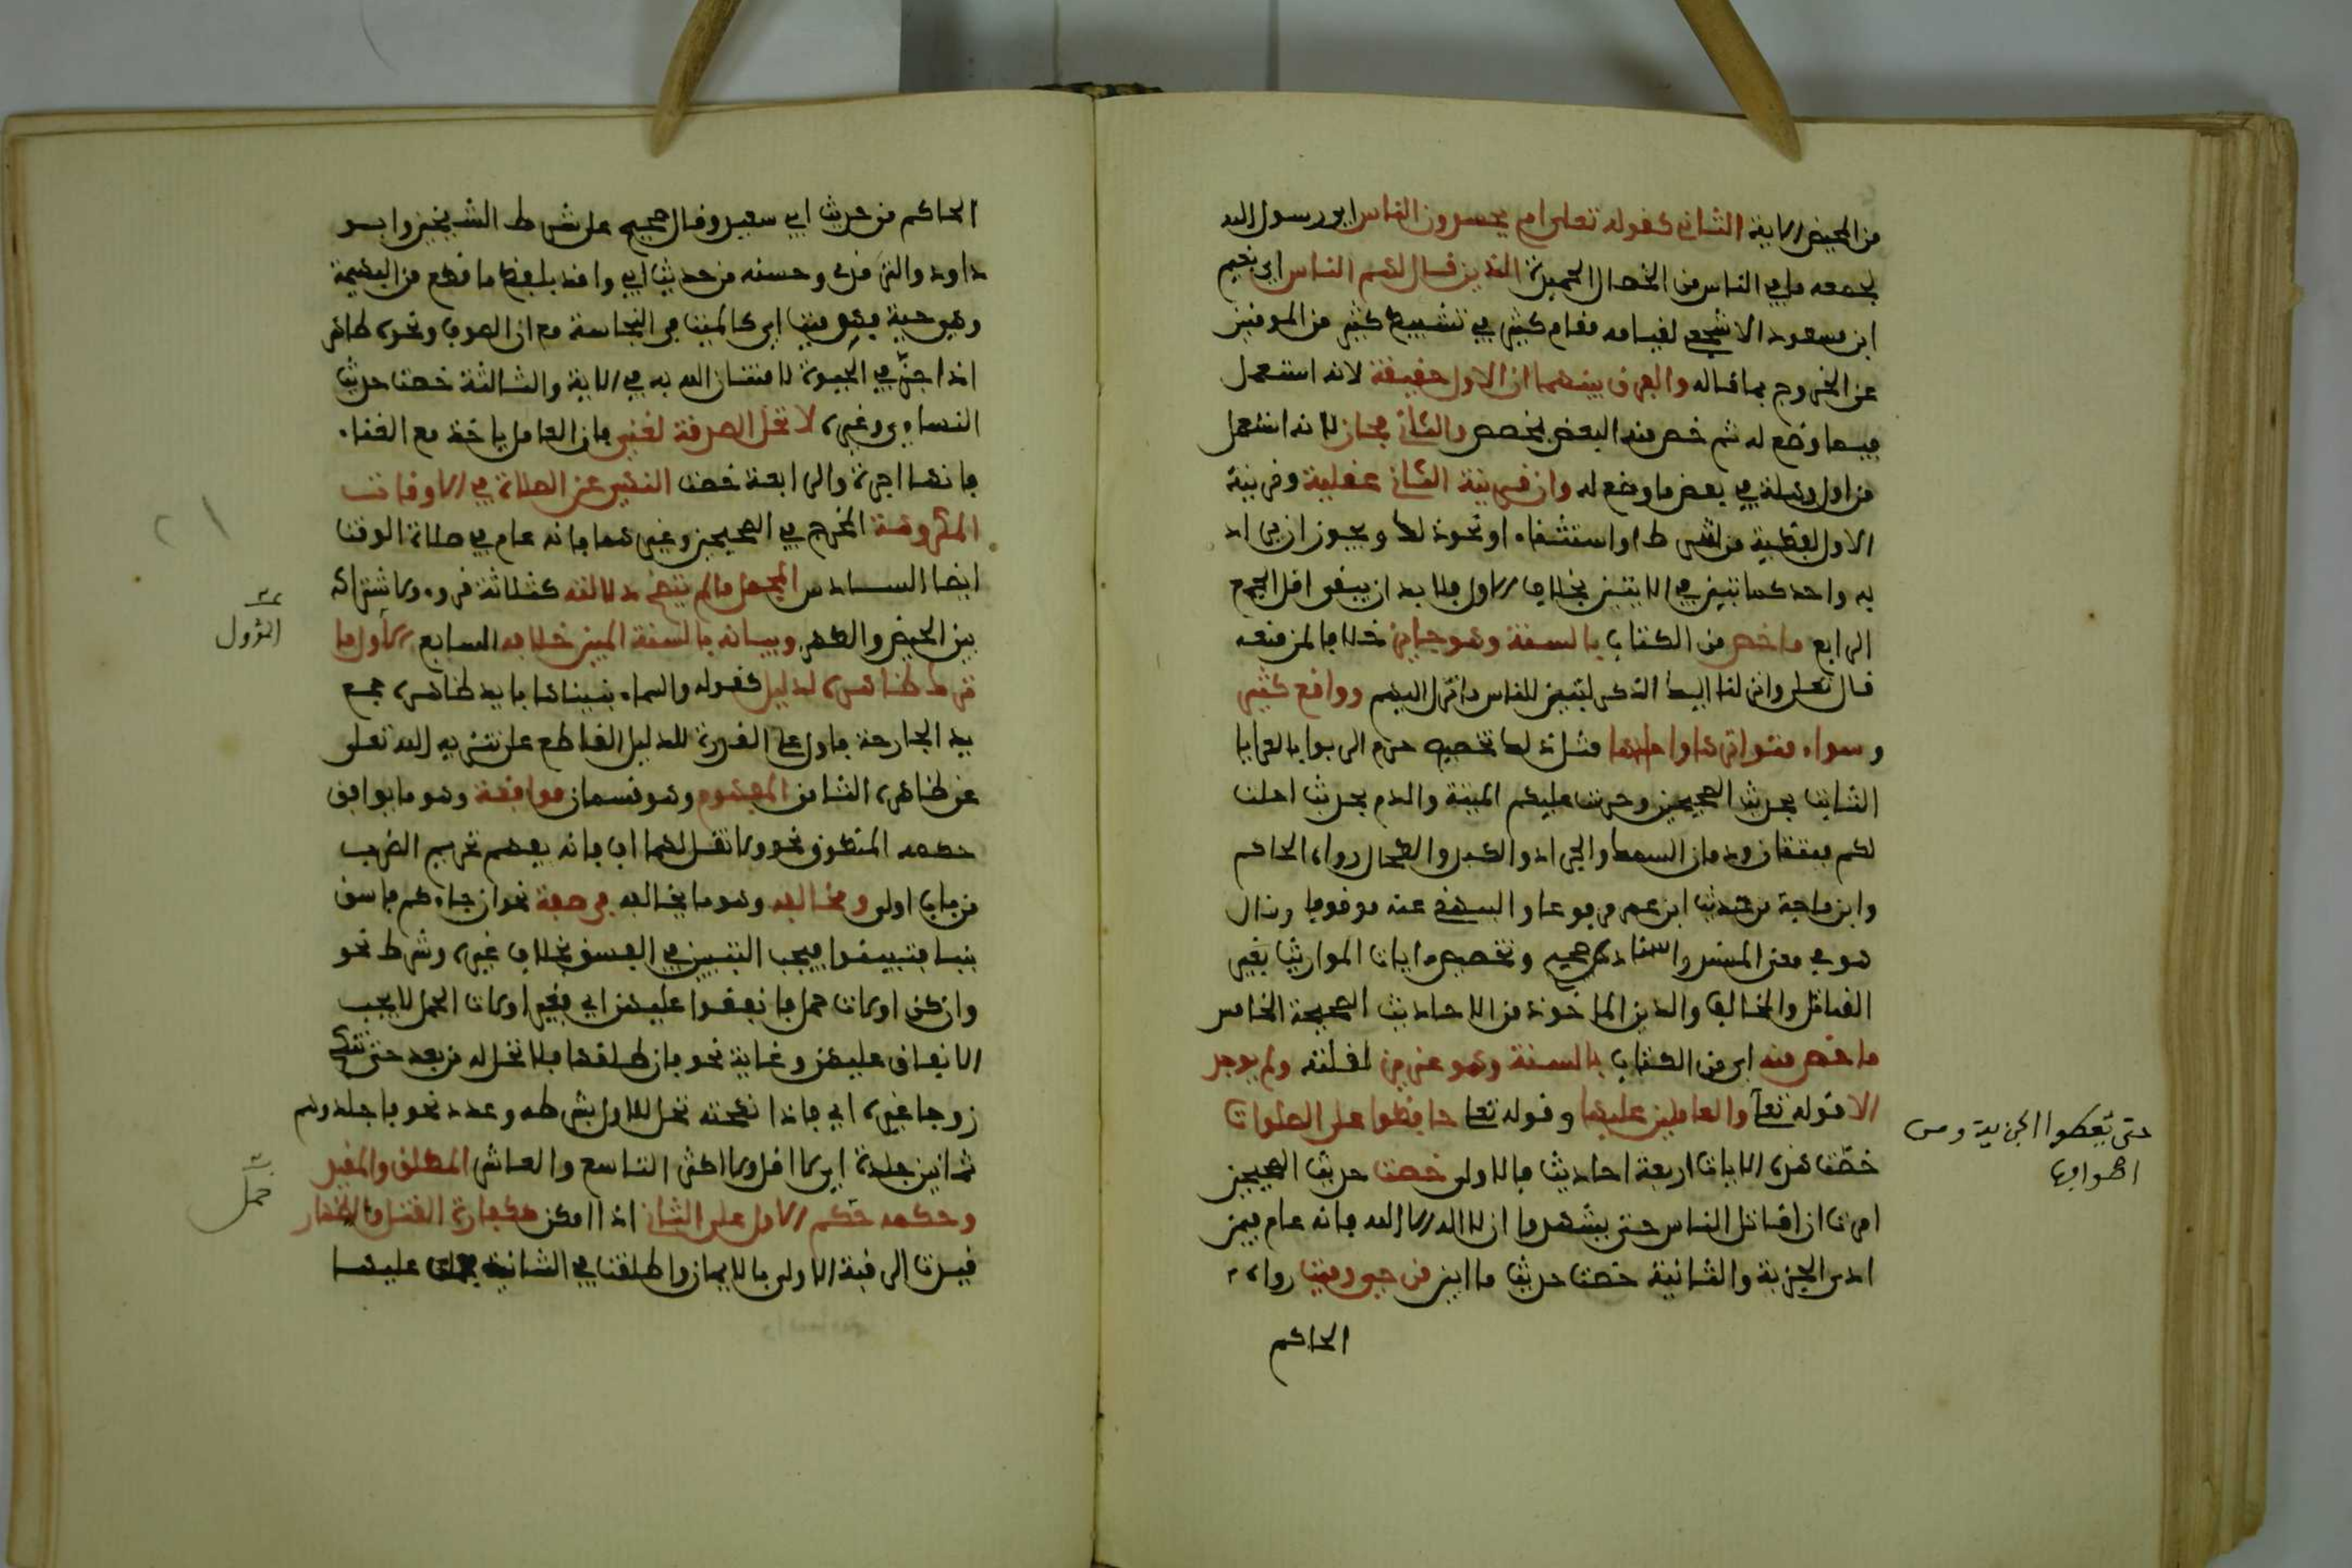 من الحيض الاية الثاني كقوله تعلى ام يحسدون الناس اي رسول الله
لجمعه ما في الناس من الخصال الحميدة الذين قال لهم الناس اي نعيم
ابن مسعود الاشجعي لقيامه مقام كثير في تثبيط كثير من المومنين
عن الخروج بما قاله والفرق بينهما ان الاول حقيقة لانه استعمل
فيما وضع له ثم خص منه البعض بمخصص والثاني مجاز لانه استعمل
من اول وهلة في بعض ما وضع له وان قرينة الثاني عقلية وقرينة
الاول لفظية من شرط او استثناء او نحو ذلك ويجوز ان يراد
به واحد كما تبين في الايتين بخلاف الاول فلا بد ان يبقى اقل الجمع
الرابع ما خص من الكتاب بالسنة وهو جايز خلافا لمن منعه
قال تعلى وانزلنا اليك الذكر لتبين للناس ما نزل اليهم وواقع كثير
وسواء متواترها واحادها مثال ذلك تخصيص حرم الربوا بالعرايا
الثابت بحديث الصحيحين وحرمت عليكم الميتة والدم بحديث احلت
لكم ميتتان ودمان السمك والجراد والكبد والطحال رواه الحاكم
وابن ماجة من حديث ابن عمر مرفوعا والبيهقي عنه موقوفا وقال
هو في معنى المسند واسناده صحيح وتخصيص ايات المواريث بغير
القاتل والمخالف والدين الماخوذة من الاحاديث الصحيحة الخامس
ما خص منه اي من الكتاب بالسنة وهو عزيز لقلته ولم يوجد
الا قوله تعا والعاملين عليها وقوله تعا حافظوا على الصلوات
حتى يعطوا الجزية ومن
اصوافها
خصت هذه الايات اربعة احاديث فالاولى خصت حديث الصحيحين
امرت ان اقاتل الناس حتى يشهدوا ان لا اله الا الله فانه عام فيمن
ادى الجزية والثانية خصت حديث ما ابين من حي فهو ميت رواه
الحاكم
الحاكم من حديث ابي سعيد وقال صحيح على شرط الشيخين وابو
داود والترمذي وحسنه من حديث ابي واقد بلفظ ما قطع من البهيمة
وهي حية فهو ميت اي كالميت في النجاسة مع ان الصوف ونحوه طاهر
اذا جز في الحيوة لامتنان الله به في الاية والثالثة خصت حديث
النساءي وغيره لا تحل الصدقة لغني فان العامل ياخذ مع الغناء
فانها اجرة والرابعة خصت النهي عن الصلاة في الاوقات
المكروهة المخرج في الصحيحين وغيرهما فانه عام في صلاة الوقت
ايضا السادس المجمل ما لم تتضح دلالته كثلاثة قروء لاشتراكه
بين الحيض والطهر وبيانه بالسنة المبين خلافه السابع الماول ما
المؤول
ترك ظاهره لدليل كقوله والسماء بنيناها بايد ظاهره جمع
يد الجارحة فاول على القدرة للدليل القاطع على تنزيه الله تعلى
عن ظاهره الثامن المفهوم وهو قسمان موافقة وهو ما يوافق
حكمه المنطوق نحو ولا تقل لهما اف فانه يفهم تحريم الضرب
من باب اولى ومخالفه وهو ما يخالفه في صفة نحو ان جاءكم فاسق
بنبا فتبينوا فيجب التبيين في الفسق بخلاف غيره وشرط نحو
وان كن اولات حمل فانفقوا عليهن اي فغير اولات الحمل لا يجب
الانفاق عليهن وغاية نحو فان طلقها فلا تحل له من بعد حتى تنكح
زوجا غيره اي فاذا نكحته تحل للاول بشرطه وعدد نحو فاجلدوهم
ثمانين جلدة اي لا اقل ولا اكثر التاسع والعاشر المطلق والمقيد
وحكمه حمل الاول على الثاني اذا امكن ككفارة القتل والظهار
حمل
قيدت الرقبة الاولى بالايمان واطلقت في الثانية عليها